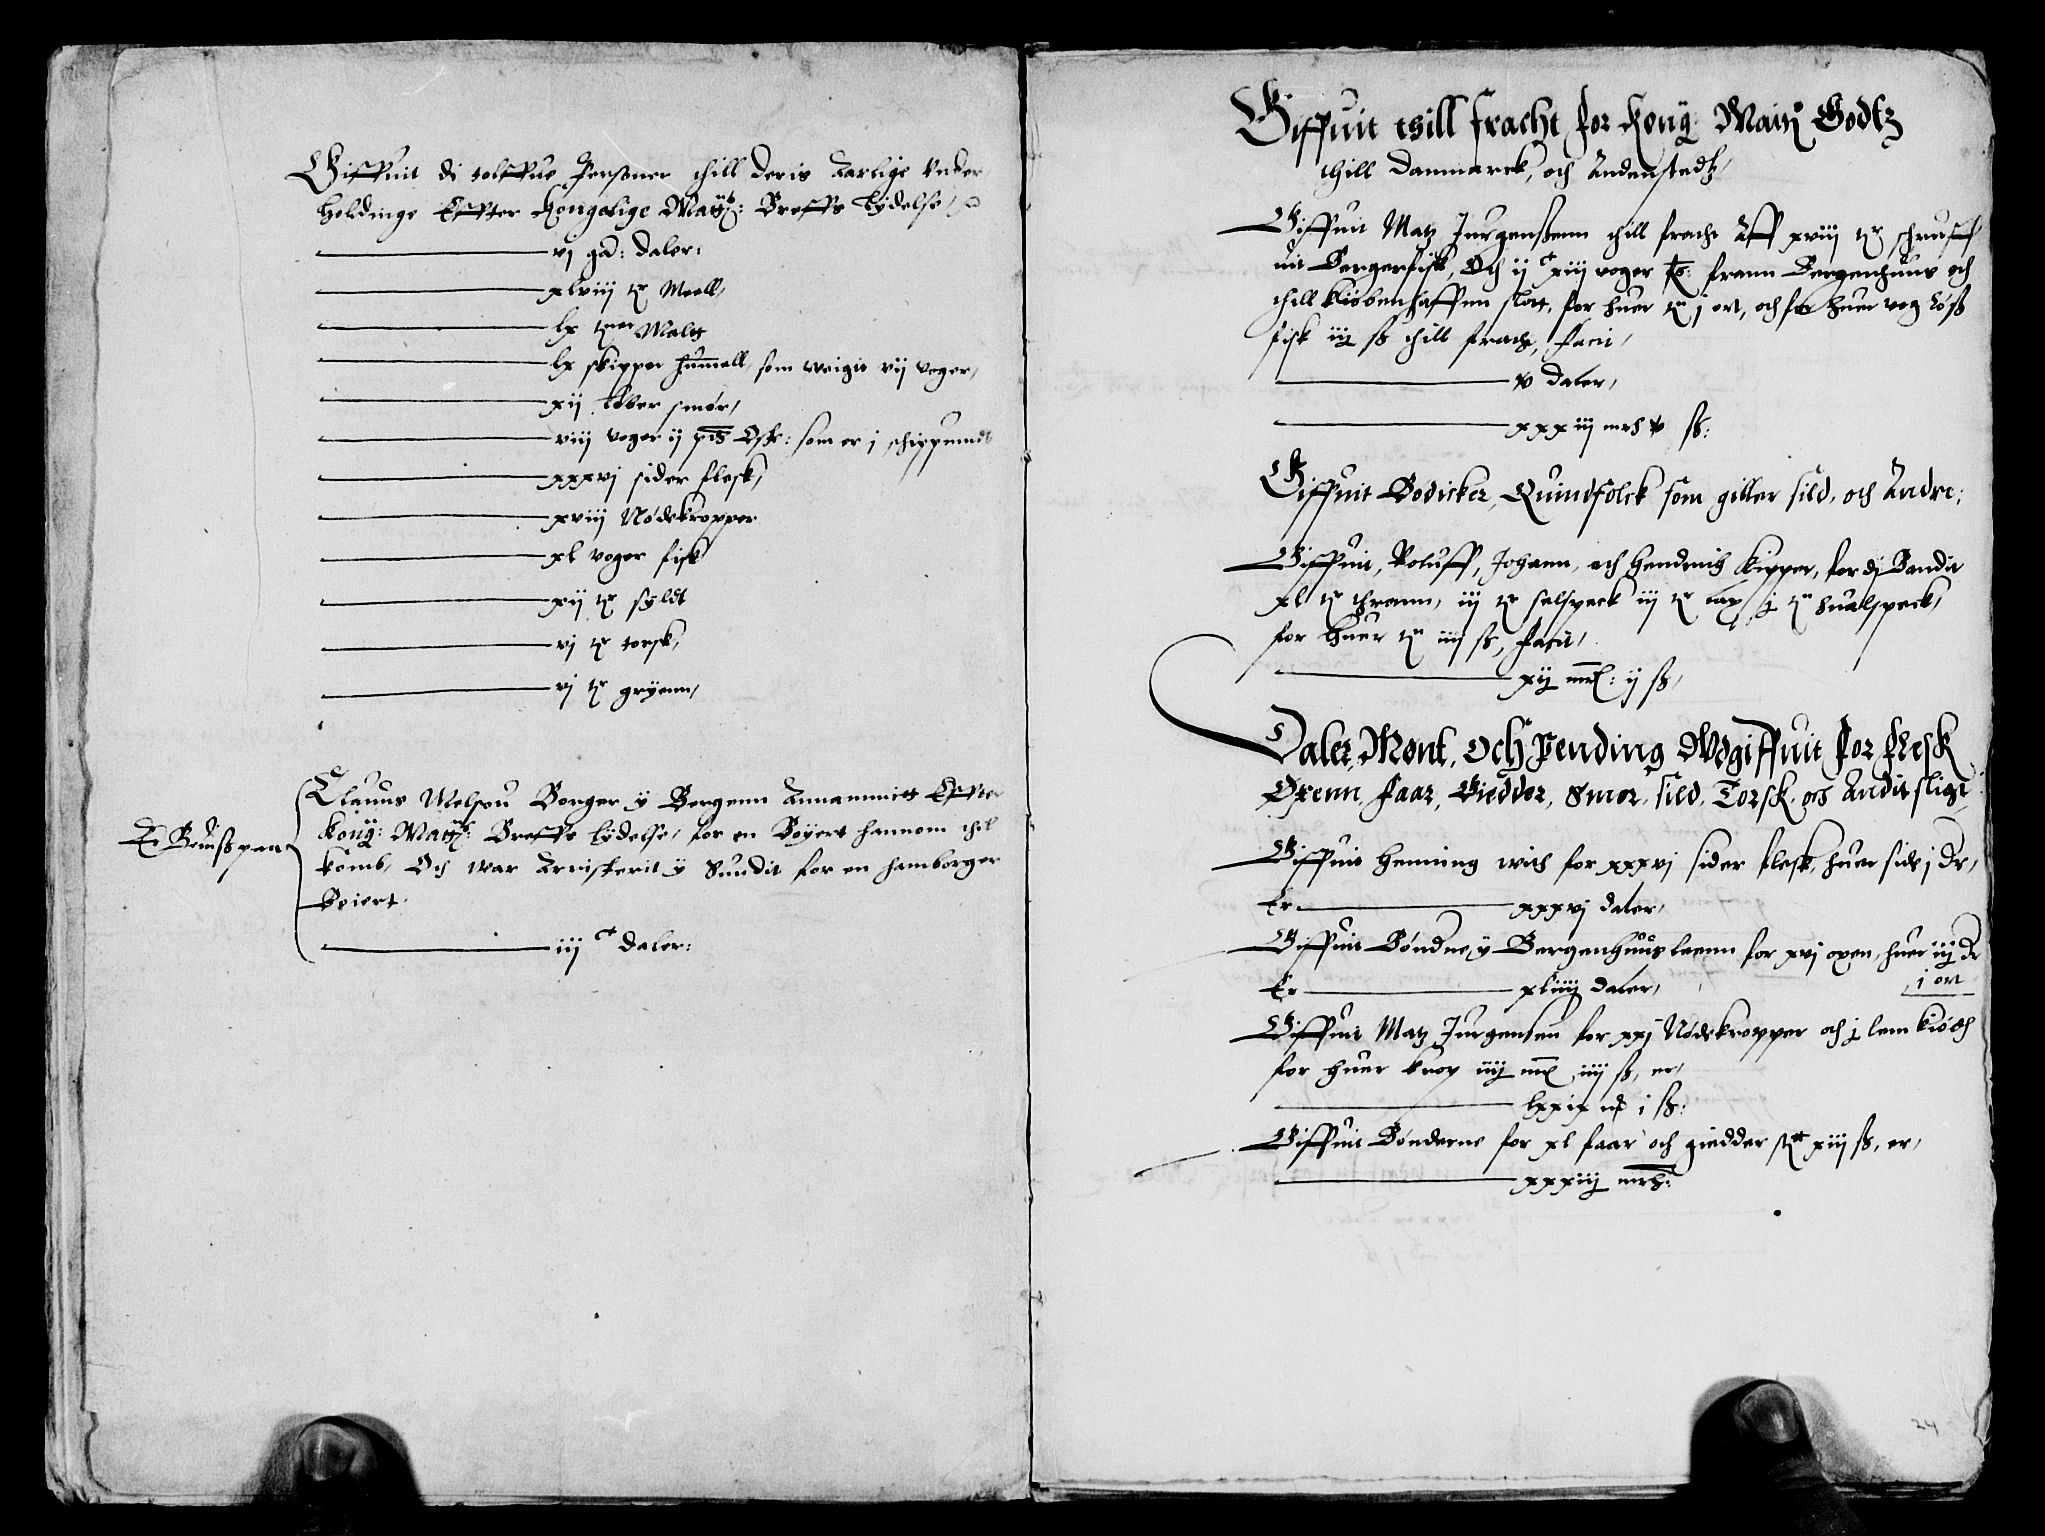 Giffuit di tolffue Personer thill deris Aarlige Under
holdinge Effter Kongelige Maytz: Breffs lydelse
vj gd: daler:
xlviij tr Meell,
lx tner Maltt
lx skipper hummell, som weigit vij voger,
xij løber smør,
viij voger ij pd : som er j schippundt
xxxvj sider flesk,
xviij Nødekropper
xl voger fisk
xij tr syldt
vj tr torsk,
vj tr gryenn,
Clauus Melsou Borger y Bergenn Annammitt Effter
Kong: Maytz: Breffs lydelse, for en Boyert hannom thil
komb, Och war Arristerit y Sundit for en hamborger
Boiert.
Bewißpaa
iij ct daler:
Giffuit till fracht for Kong: Maitz Godtz
thill Danmarck, och Andenstedtz,
Giffuit Matz Jurgenßenn thill fracht Aff xviij tr schruff
uit Bergerfisk, Och ij ct xiij voger frann Bergenhuus och
thill Kiøbenhaffuen slot, for huer tr j ort, och for huer vog løß
fisk iij ß thill fracht, facit,
v daler,
xxxiij mrk v ß:
Giffuit Bodicker, Quindfolck som giller sild, och Andre:
Giffuit, Roluff, Johann, och Hendrich Kipper, for dj Bandit
xl tr thrann, iij tr selspeck iij tr lax j tr hualspeck,
for huer tr iiij ß, facit,
xij mrk: ij ß,
Daler, Mønt, och Pending Wdgiffuit for flesk
Oxenn, faar, Giedder, Smør, sild, Torsk, och Andit sligt,
Giffuit Henning wich for xxxvj sider flesk, huer side j dr,
Er xxxvj daler,
Giffuit Bøndne y Bergenhuus leenn for xvj oxen, huer iij dr
j ort
Er xliiij daler,
Giffuit Matz Jurgensen for xxj Nødekropper och j lem kiødt
for huer krop iiij mrk iiij ß, er,
lxxix mk j ß:
Giffuit Bønderne for xl faar och giedder st xiij ß, er,
xxxiij mrk:
24